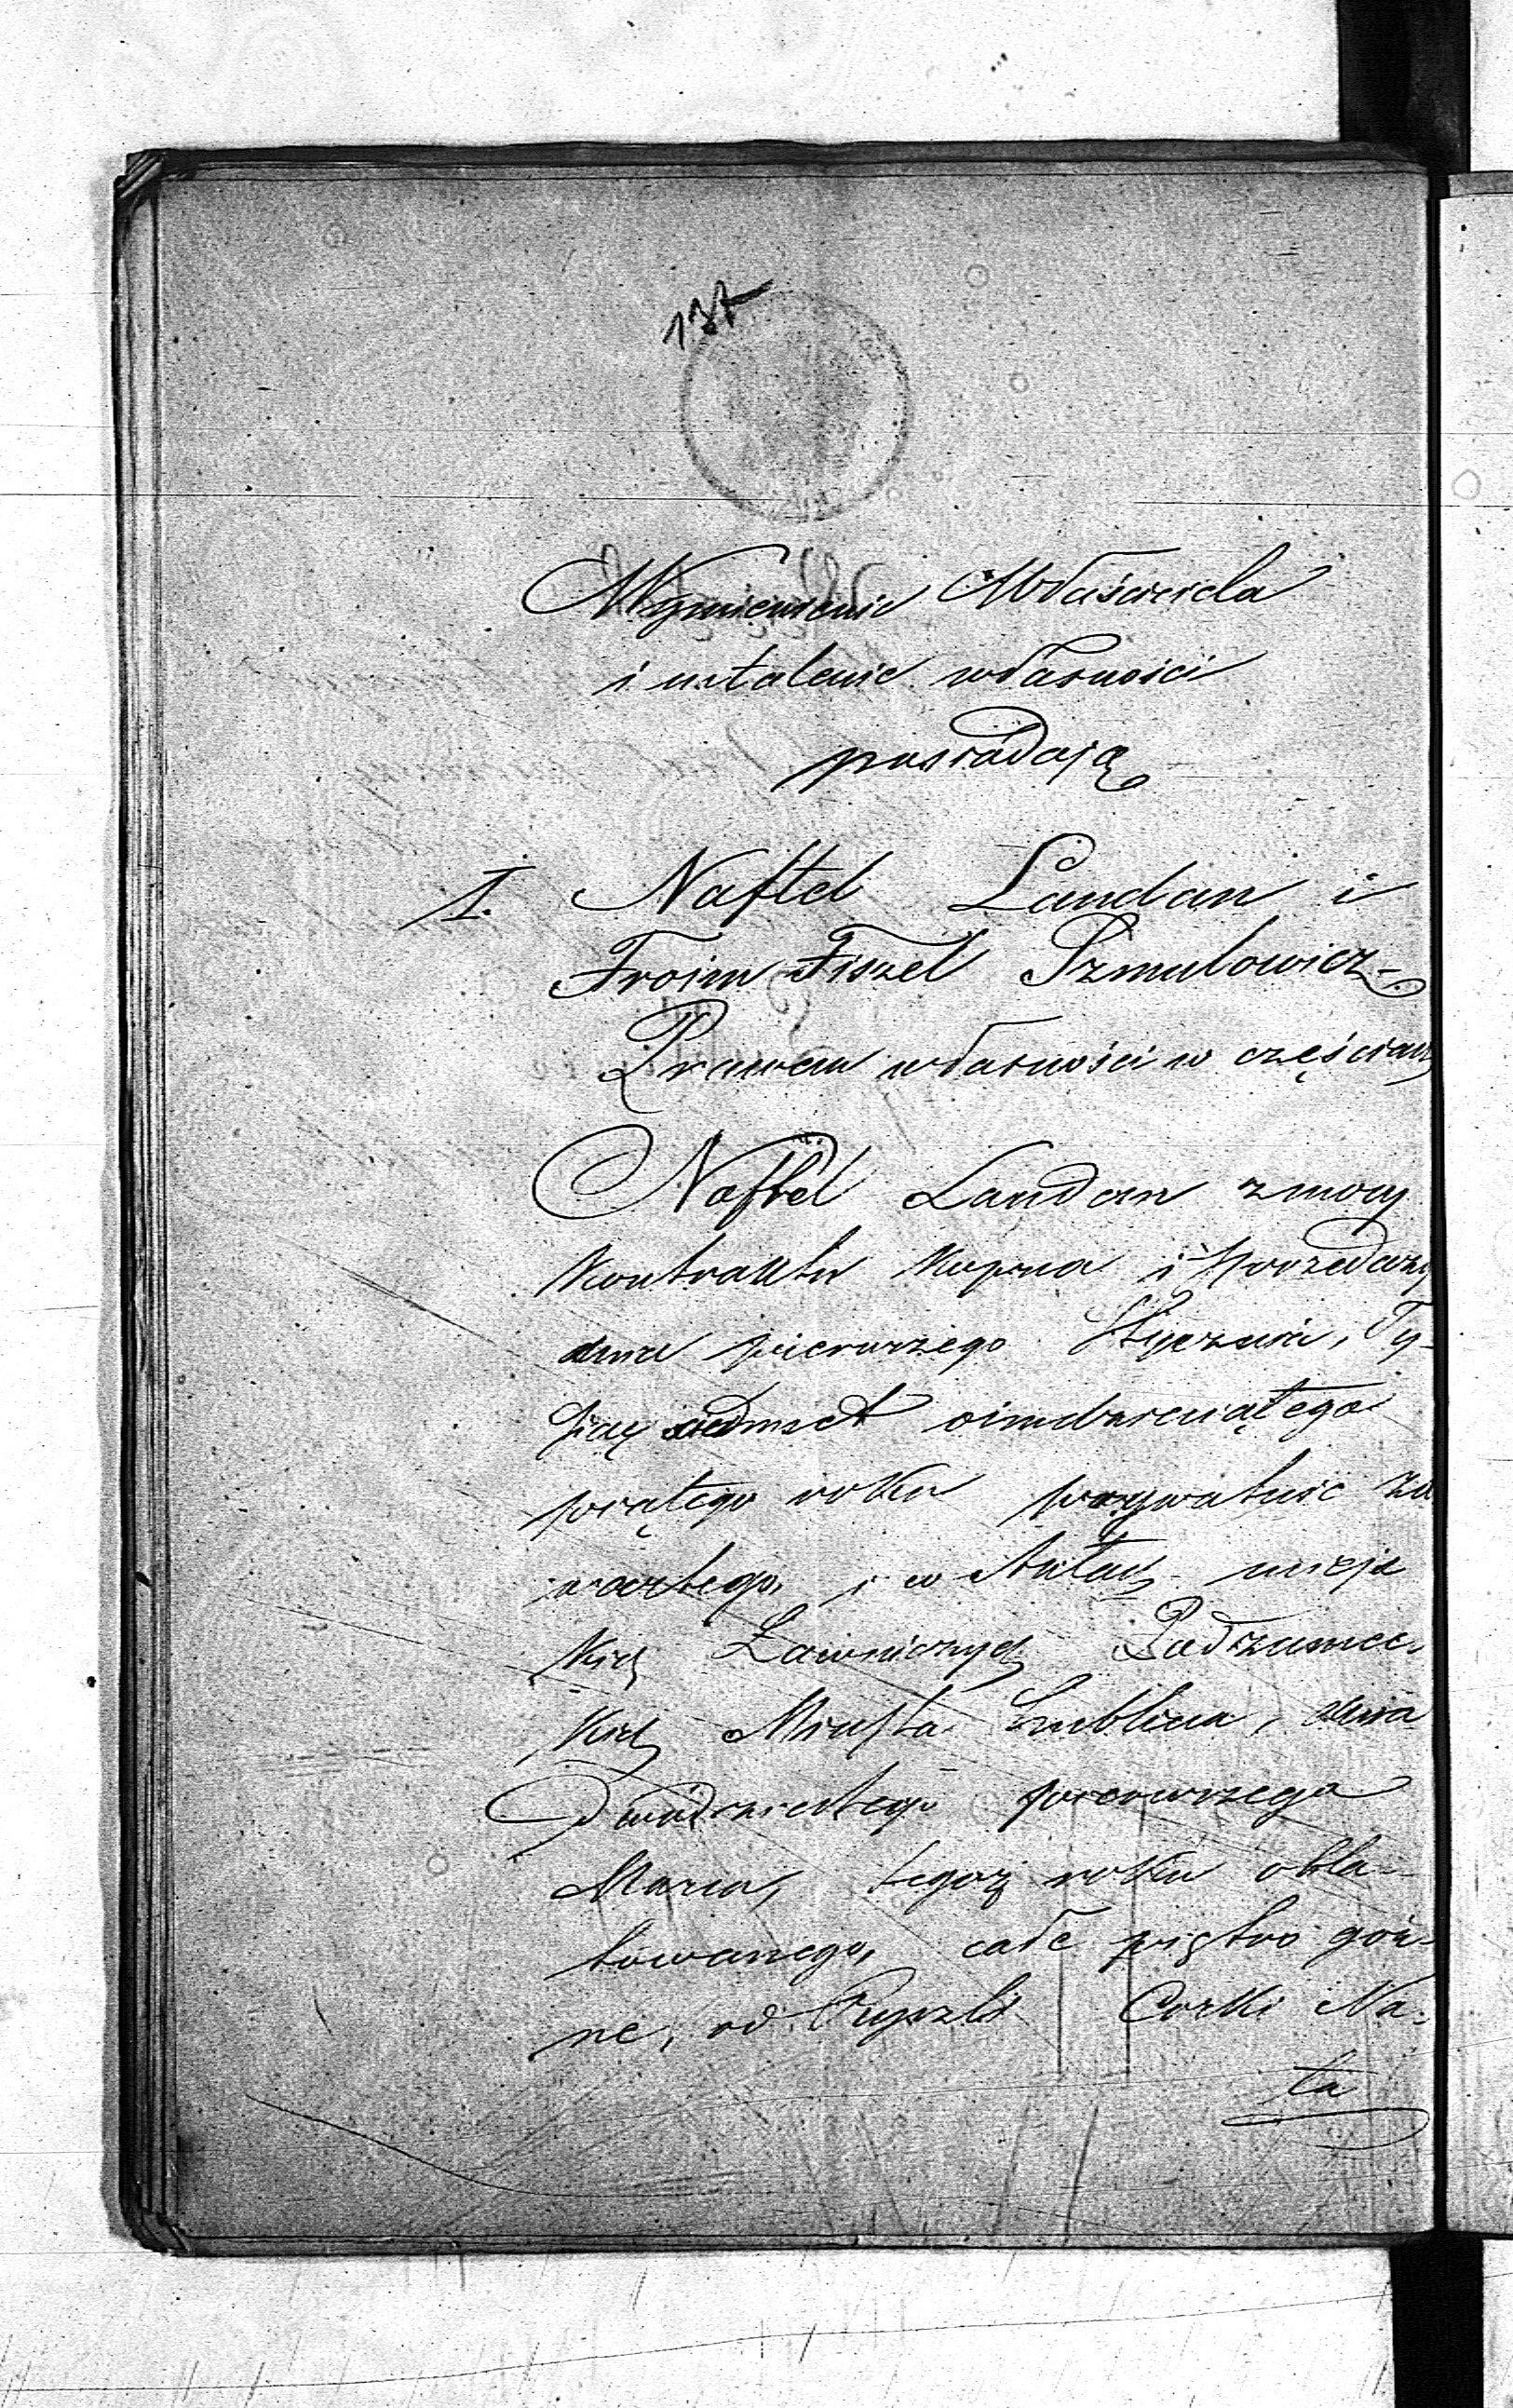 137
Wymienienie Właściciela
i ustalenie własności
posiadają
1. Naftel Landau i
Froim Fiszel Szmulowicz
Prawem własności w częściach
Naftel Landau z mocy
Kontraktu Kupna i sprzedaży
dnia pierwszego Stycznia, Ty-
siąc siedmset ośmdziesiątego
piątego roku prywatnie za
wartego, i w Aktach miejs
kich Ławniczych Podzamec-
kich Miasta Lublina, dnia
Dwódziestego pierwszego
Marca, tegoż roku obla-
towanego, całe piętro gór-
ne, od Córki Na-
ta